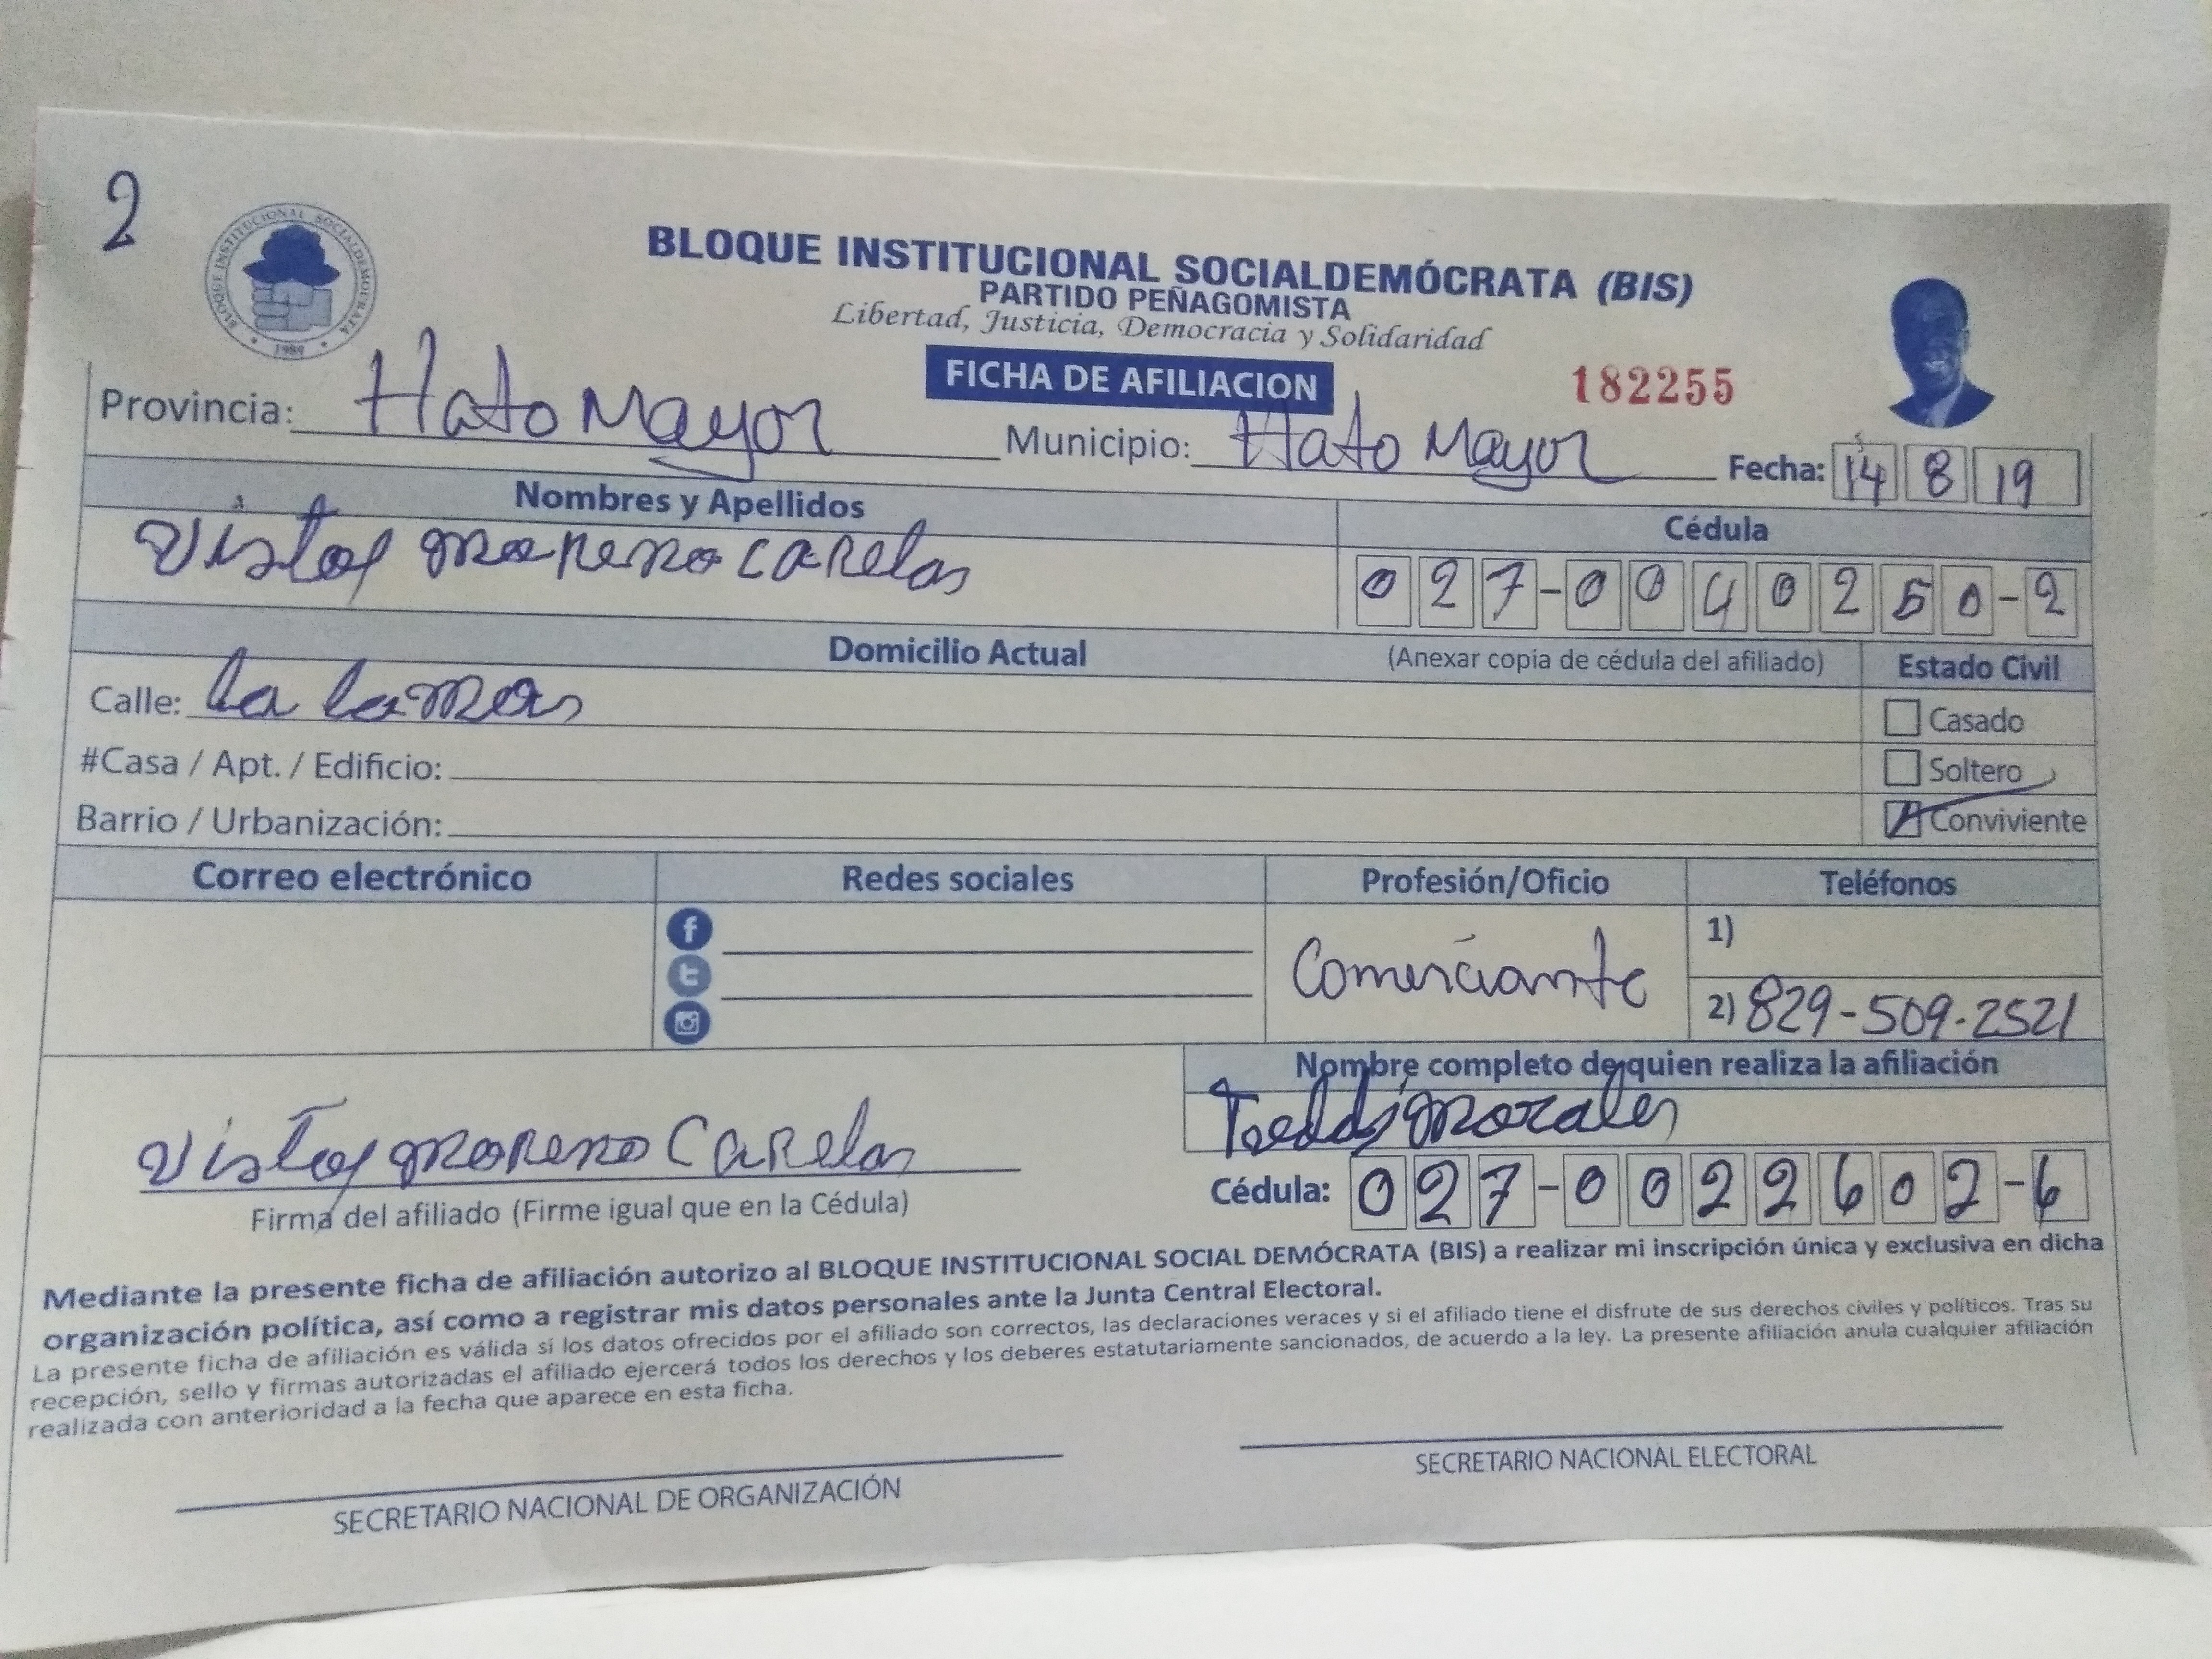 2
BLOQUE INSTITUCIONAL SOCIALDEMOCRATA
1989
BLOQUE INSTITUCIONAL SOCIALDEMÓCRATA (BIS)
PARTIDO PEÑAGOMISTA
Libertad, Justicia, Democracia y Solidaridad
FICHA DE AFILIACION
182255
Provincia: Hato Mayor Municipio: Hato Mayor Fecha: 14 8 19
Nombres y Apellidos
Cédula
moreno CARelas
027-0040250-2
Domicilio Actual
(Anexar copia de cédula del afiliado)
Estado Civil
Calle: la lomas
Casado
#Casa / Apt. / Edificio:
Soltero
Barrio / Urbanización:
Conviviente
Correo electrónico
Redes sociales
Profesión/Oficio
Teléfonos
Comerciante
1)
2) 829-509-2521
Nombre completo de quien realiza la afiliación
morales
moreno CARelas
Firma del afiliado (Firme igual que en la Cédula)
Cédula: 027-0022602-6
Mediante la presente ficha de afiliación autorizo al BLOQUE INSTITUCIONAL SOCIAL DEMÓCRATA (BIS) a realizar mi inscripción única y exclusiva en dicha
organización política, así como a registrar mis datos personales ante la Junta Central Electoral.
La presente ficha de afiliación es válida si los datos ofrecidos por el afiliado son correctos, las declaraciones veraces y si el afiliado tiene el disfrute de sus derechos civiles y políticos. Tras su
recepción, sello y firmas autorizadas el afiliado ejercerá todos los derechos y los deberes estatutariamente sancionados, de acuerdo a la ley. La presente afiliación anula cualquier afiliación
realizada con anterioridad a la fecha que aparece en esta ficha.
SECRETARIO NACIONAL DE ORGANIZACIÓN
SECRETARIO NACIONAL ELECTORAL